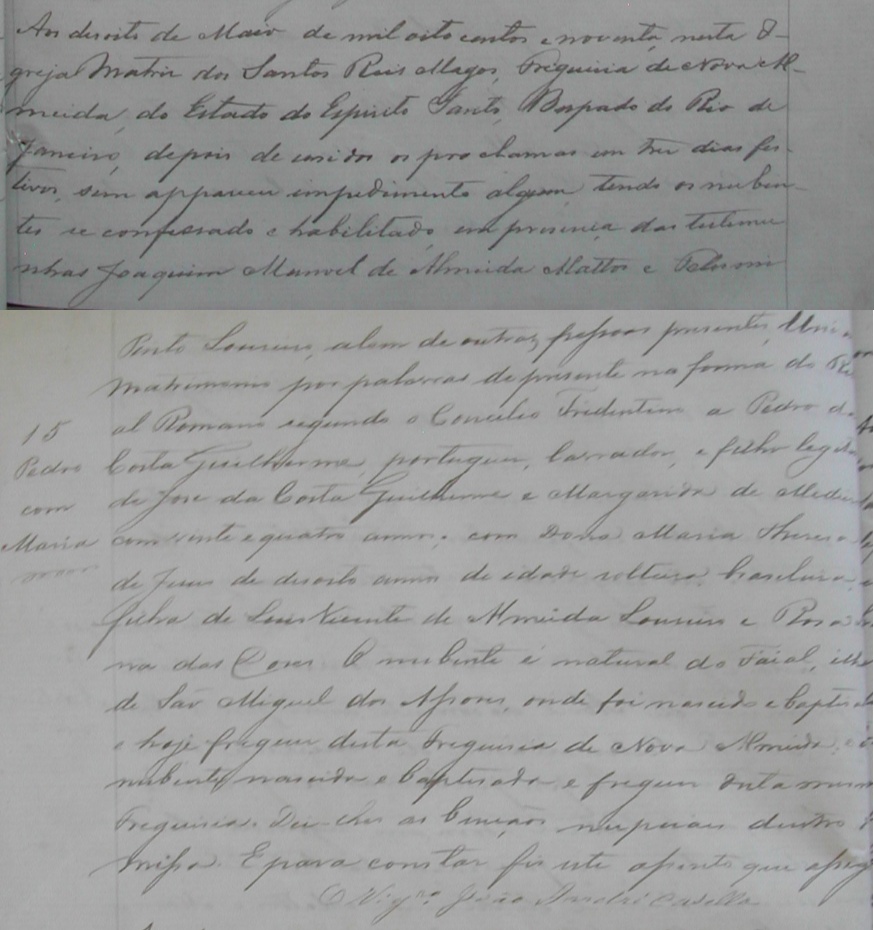 Aos desoito de Maio de mil oito centos e noventa, nesta I-
greja Matriz dos Santos Reis Magos, Freguesia de Nova Al-
meida, do Estado do Espirito Santo, Bispado do Rio de
Janeiro, depois de corridos os proclamas em tres dias fes-
tivos, sem apparecer impedimento algum, tendo os nuben-
tes se confessado e habilitado, em presença das testemu
nhas Joaquim Manoel de Almeida Mattos e
Pinto Loureiro, alem de outras pessoas presentes,
matrimonio por palavras de presente na forma do Ri
al Romano segundo o Concilio Tridentino a Pedro da
15
Pedro
com
Maria
Costa Guilherme, portuguez, lavrador, e filho legit
de José da Costa Guilherme e Margarida de Medei
com vinte e quatro annos; com Dona Maria Thereza
de Jesus de desoito annos de idade solteira, brasileira,
filha de Luis Vicente de Almeida Loureiro e Rosa
na das Dores. O nubente é natural do Faial, ilha
de São Miguel dos Assores, onde foi nascido e baptisado
e hoje freguez desta Freguesia de Nova Almeida; e a
nubente nascida e baptisada e freguez desta mesma
Freguesia. Dei-lhes as bençãos nupciaes dentro
missa. E para constar fiz este assento que assig
O Vigrº João André Casella